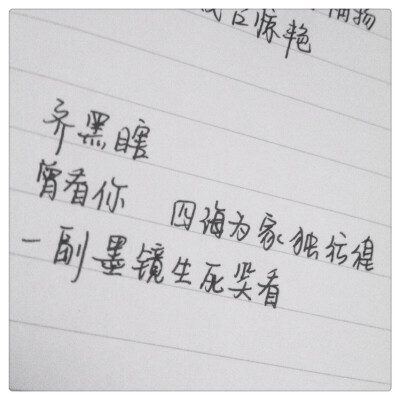 惊艳
齐黑瞎
曾看你 四海为家独彷徨
一副墨镜生死笑看